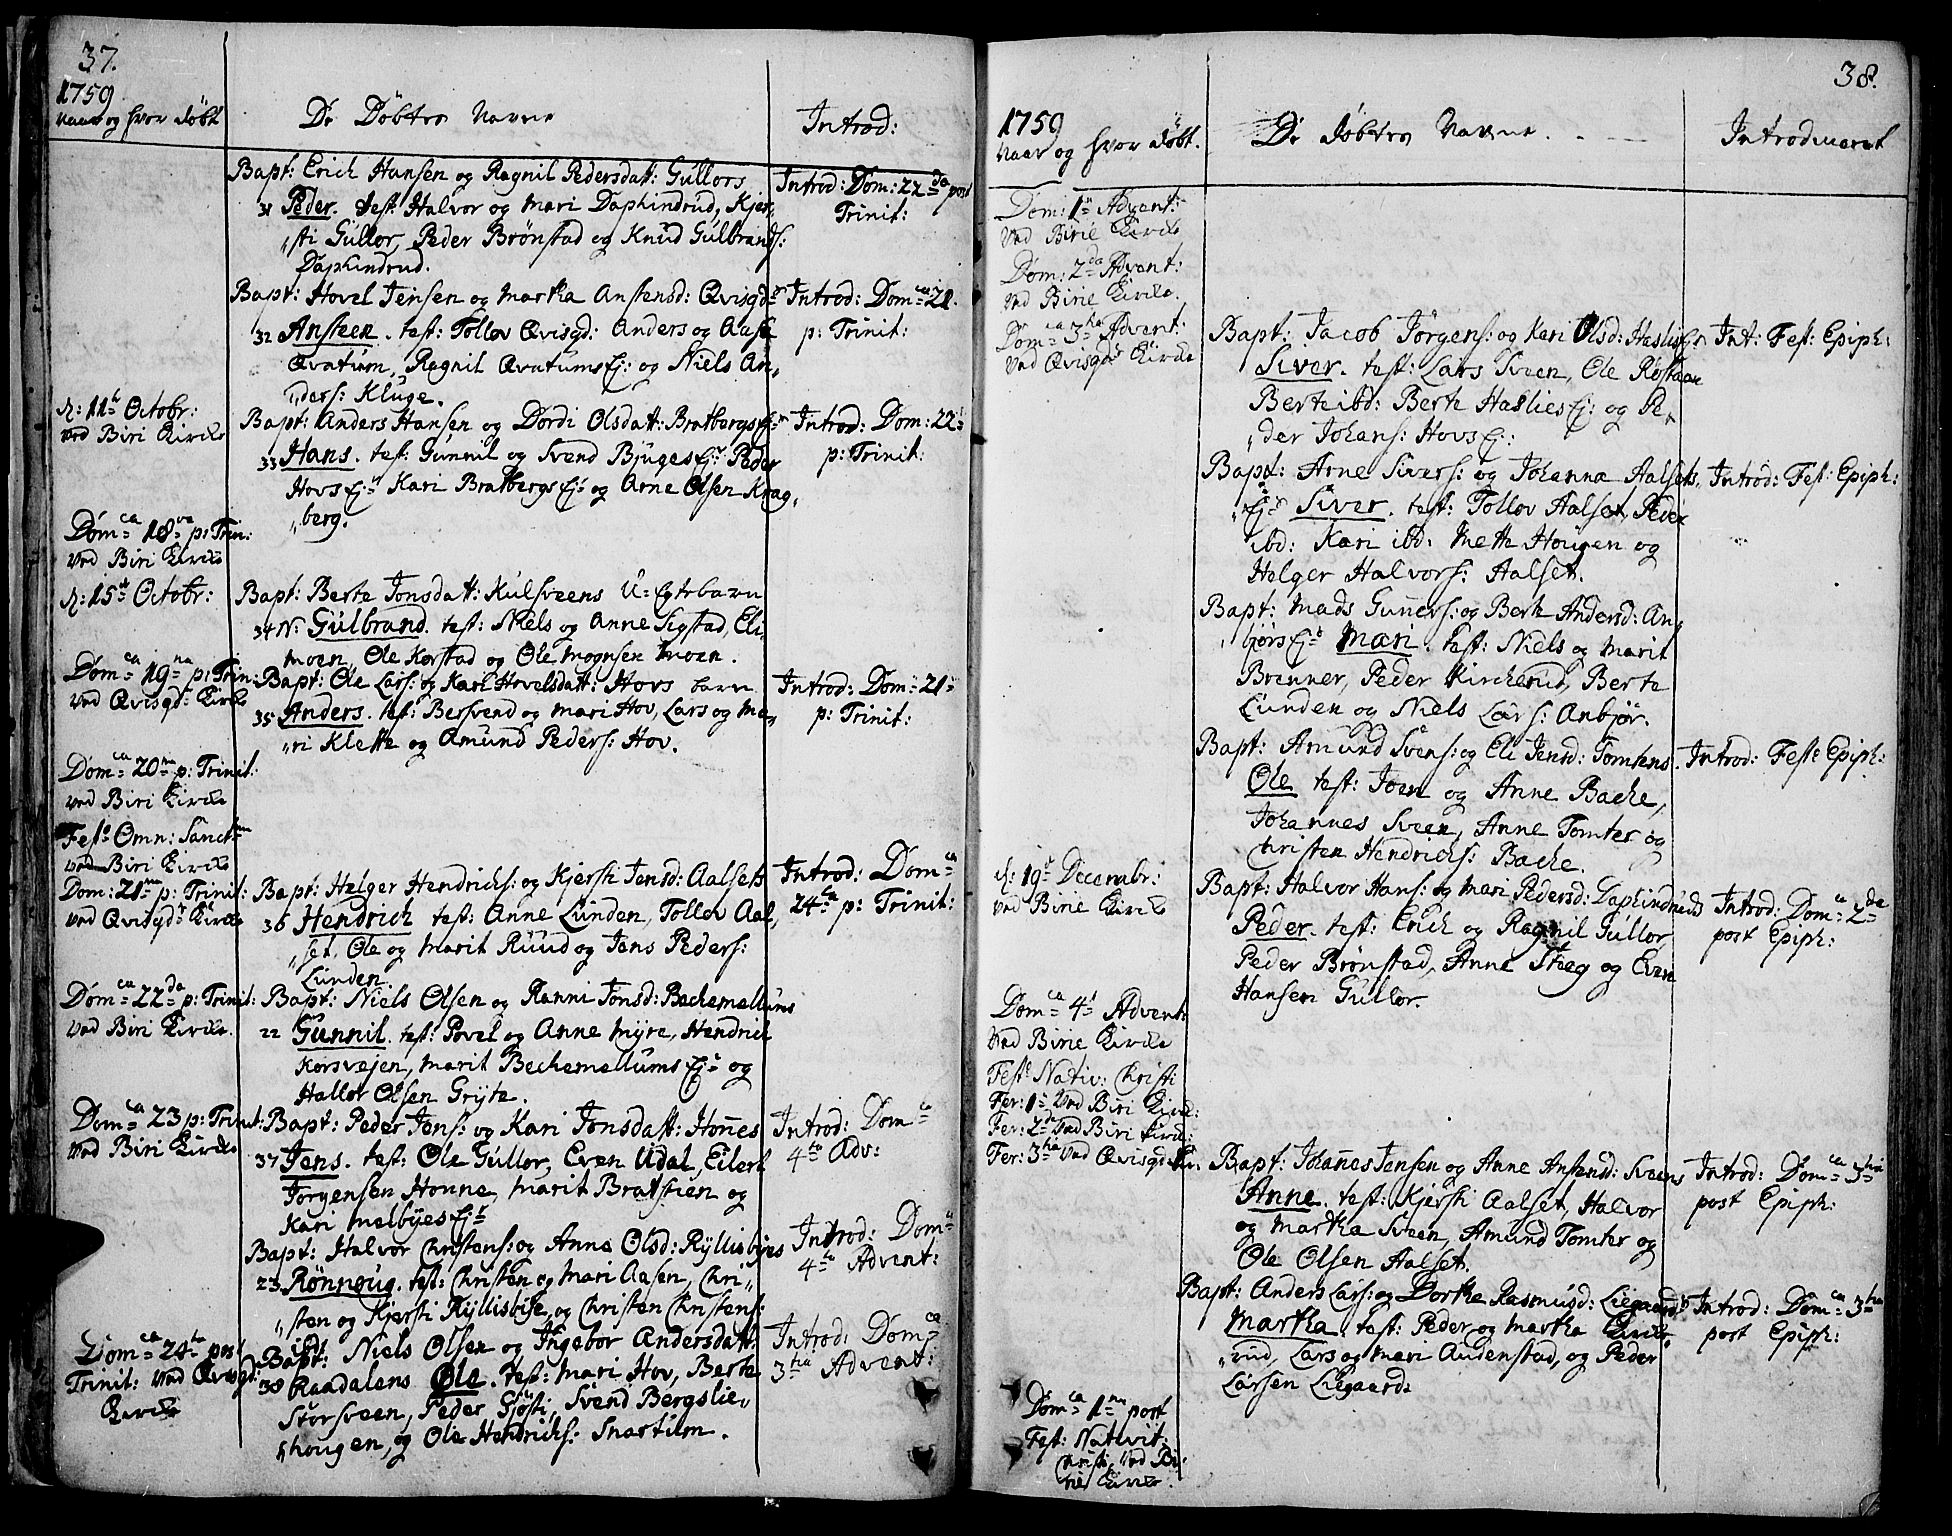 37.
1759
Naar og hvor døbt
De Døbtes Navne
Introd:
Bapt: Erich Hansen og Ragnil Pedersdatt: Gullors
31 Peder. test: Halvor og Mari Daphindrud, Kjer-
„sti Gullor, Peder Brønstad og Knud Gulbrands:
Daphindrud.
Introd: Dom: 22da post
Trinit:
Bapt: Hovel Jensen og Martha Anstensd: Qvisgd:
32 Ansteen. test: Tollov Qvisgd: Anders og Aase
Qvatum, Ragnil Qvatums Ej: og Niels An„
„ders: Kluge.
Introd: Dom ca 21.
p: Trinit:
d: 11te Octobr:
ved Biri Kirche
Bapt: Anders Hansen og Dordi Olsdatt: Bratbergs Ej
33 Hans. test: Gunnil og Svend Bjuges Ej: Peder
Hovs Ej: Kari Bratbergs Ej: og Arne Olsen Krag„
„berg.
Introd: Dom: 22
p: Trinit:
Dom ca 18va p: Trin:
ved Biri Kirche
d: 15de Octobr:
Bapt: Berte Jonsdatt: Kulsveens U=Egtebarn
34 N: Gulbrand. test: Niels og Anne Sigstad, Eli
Moen, Ole Korstad og Ole Mognsen Moen.
Dom ca 19na p: Trin:
ved Qvisgd: Kirche
Bapt: Ole Lars: og Kari Hovelsdatt: Hovs barn
35 Anders. test: Bersvend og Mari Hov, Lars og Ma„
„ri Klette og Amund Peders: Hov.
Introd: Dom: 21
p: Trinit:
Dom ca 20ma p: Trinit:
ved Biri Kirche
Fest: Omn: Sanct:
ved Biri Kirche
Dom: 21ma p: Trinit:
ved Qvisgd: Kirche
Bapt: Helger Hendrichs: og Kjersti Jensd: Aalsets
36 Hendrich test: Anne Lunden, Tollov Aal„
„set, Ole og Marit Ruud og Jens Peders:
Lunden.
Introd: Dom ca
24ta p: Trinit:
Dom ca 22da p: Trinit:
ved Biri Kirche.
Bapt: Niels Olsen og Ranni Jonsd: Bechemellums
22 Gunnil. test: Povel og Anne Myre, Hendrich
Korsvejen, Marit Bechemellums Ej: og
Hallor Olsen Gryte.
Dom ca 23 p: Trinit:
ved Biri Kirche
Bapt: Peder Jens: og Kari Jonsdatt: Honnes
37 Jens. test: Ole Gullor, Even Udal, Eilert
Jorgensen Honne, Marit Bratstien og
Kari Melbyes Ej:
Introd: Dom ca
4ta Adv:
Bapt: Halvor Christens: og Anne Olsd: Ryllisbyes
23 Rønnoug. test: Christen og Mari Aasen, Chri„
„sten og Kjersti Ryllisbye, og Christen Christens:
ibd:
Introd: Dom ca
4ta Advent:
Dom ca 24ta post
Trinit: ved Qvisgd:
Kirche
Bapt: Niels Olsen og Ingebor Andersdatt:
38 Raadalens Ole. test: Mari Hov, Berte
Storsveen, Peder Gjøsti, Svend Bergslie„
„hougen, og Ole Hendrichs: Snartum.
Introd: Dom ca
3tia Advent:
38.
1759
Naar og hvor døbt.
De døbtes Navne.
Introduceret
Dom: 1 Advent:
ved Birie Kirche
Dom: 2da Advent:
ved Birie Kirche.
Dom ca 3tia Advent:
ved Qvisgds Kirche
Bapt: Jacob Jørgens: og Kari Olsd: Haslies Ej
Siver. test: Lars Sveen, Ole Røstaan
Berte ibd: Berte Haslies Ej: og Pe„
„der Johans: Hovs Ej:
Int: Fest: Epiph:
Bapt: Arne Sivers: og Johanna Aalsets
Ej: Siver. test: Tollov Aalset, Peder
ibd: Kari ibd: Mette Hougen og
Helger Halvors: Aalset.
Introd: Fest: Epiph:
Bapt: Mads Gunners: og Berte Andersd: An„
„bjørs Ej: Mari. test: Niels og Marit
Brenner, Peder Kircherud, Berte
Lunden og Niels Lars: Anbjør.
Bapt: Amund Svens: og Eli Jensd: Tomtens.
Ole test: Joen og Anne Bache,
Johannes Sveen, Anne Tomter og
Christen Hendrichs: Bache.
Introd: Fest: Epiph:
d: 19de Decembr:
ved Birie Kirche
Bapt: Halvor Hans: og Mari Pedersd: Daphindruds
Peder. test: Erich og Ragnil Gullor
Peder Brønstad, Anne Steg og Even
Hansen Gullor.
Introd: Dom ca 2da
post Epiph:
Dom ca 4ta Advent:
ved Birie Kirche
Fest: Nativ: Christi
Fer: 1 ved Biri Kirch:
Fer: 2da ved Biri Kirch:
Fer: 3tia ved Qvisgd: Kir.
Bapt: Johannes Jensen og Anne Anstensd: Sveens
Anne. test: Kjersti Aalset, Halvor
og Martha Sveen, Amund Tomter og
Ole Olsen Aalset.
Introd: Dom ca 3tia
post Epiph:
Bapt: Anders Lars: og Dorthe Rasmusd: Liegaards
Martha. test: Peder og Martha Kirche„
„rud, Lars og Mari Audenstad, og Peder
Larsen Liegaard.
Introd: Dom ca 3tia
post Epiph:
Dom ca 1ma post
Fest: Nativit:
Christi, ved Bi„
rie Kirche.